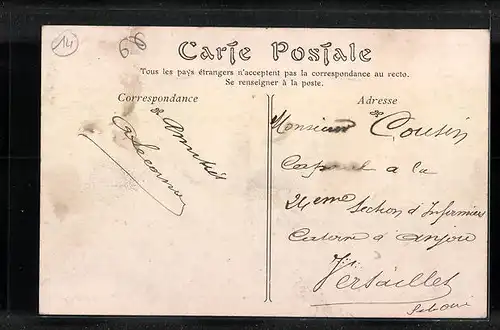 14
68
Carte Postale
Tous les pays étrangers n'acceptent pas la correspondance au recto.
Se renseigner à la poste.
Correspondance
Amitiés
Adresse
Monsieur Cousin
Caporal a la
24eme Section d'Infirmiers
Caserne d'anjou
Versailles